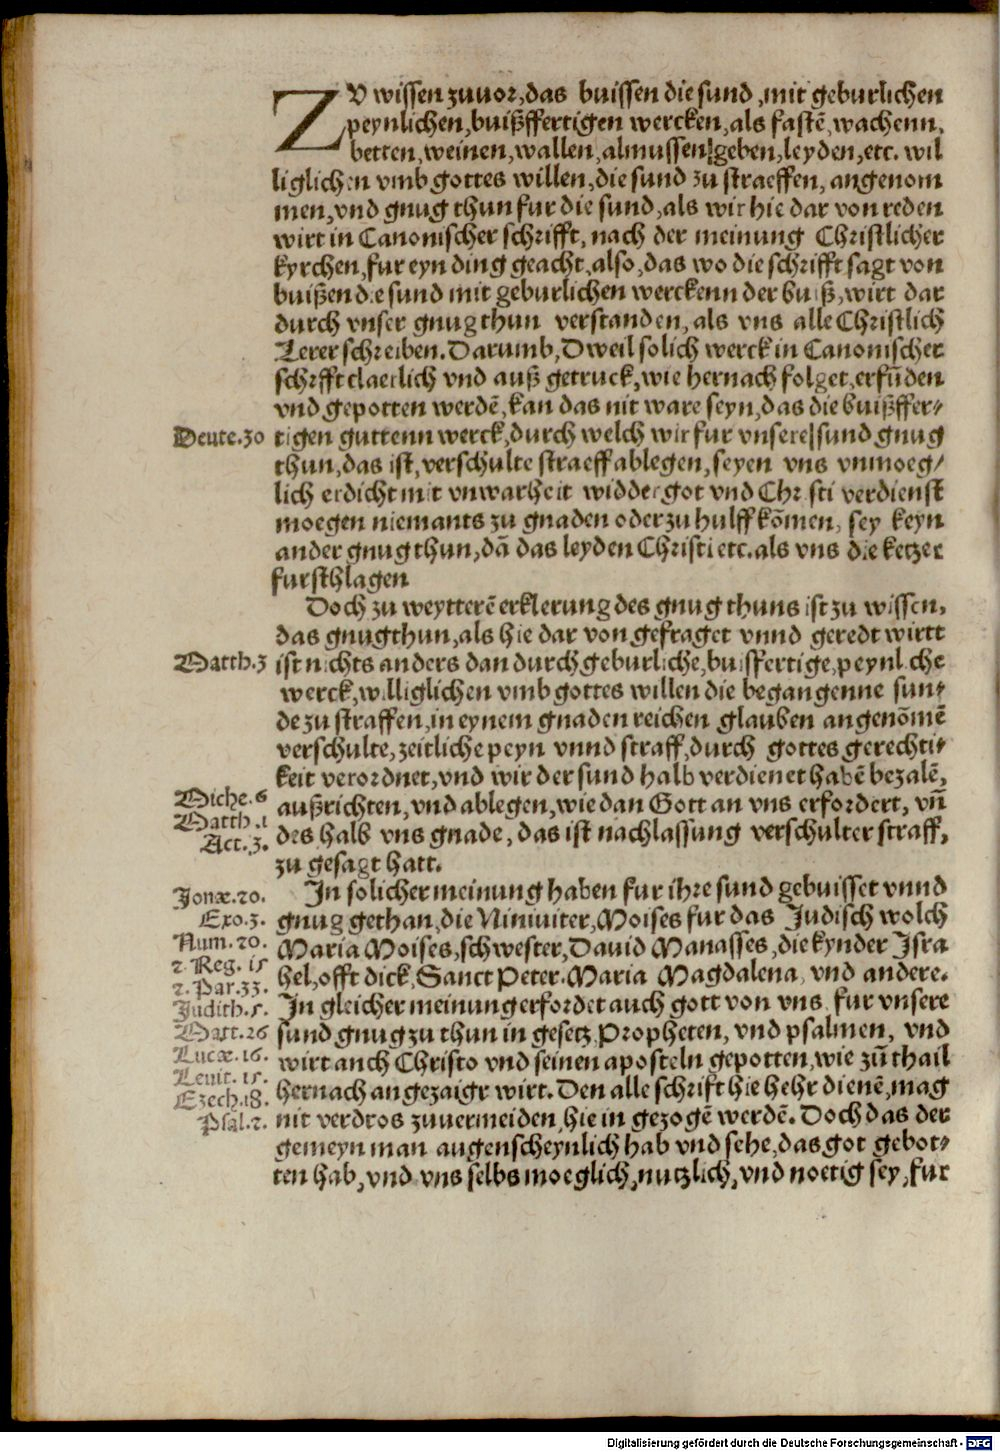 ZV wissen zuuor, das buissen die sund, mit geburlichen
peynlichen, buißffertigen wercken, als fastē, wachenn,
betten, weinen, wallen, almussen geben, leyden, etc. wil
liglichen vmb gottes willen, die sund zu straeffen, angenom
men, vnd gnug thun fur die sund, als wir hie dar von reden
wirt in Canonischer schrifft, nach der meinung Christlicher
kyrchen, fur eyn ding geacht, also, das wo die schrifft sagt von
buißen die sund mit geburlichen werckenn der buiß, wirt dar
durch vnser gnugthun verstanden, als vns alle Christlich
Lerer schreiben. Darumb, Dweil solich werck in Canonischer
schrifft claerlich vnd auß getruck, wie hernach folget, erfūden
vnd gepotten werdē, kan das nit ware seyn, das die buißffer-
Deute. 30 tigen guttenn werck, durch welch wir fur vnsere sund gnug
thun, das ist, verschulte straeff ablegen, seyen vns vnmoeg-
lich erdicht mit vnwarheit widder got vnd Christi verdienst
moegen niemants zu gnaden oder zu hulff kōmen, sey keyn
ander gnugthun, dā das leyden Christi etc. als vns die ketzer
fursthlagen
Doch zu weytterē erklerung des gnug thuns ist zu wissen,
das gnugthun, als hie dar von gefraget vnnd geredt wirtt
Matth. 3 ist nichts anders dan durch geburliche, buissfertige, peynliche
werck, williglichen vmb gottes willen die begangenne sun-
de zu straffen, in eynem gnadenreichen glauben angenōmē
verschulte, zeitliche peyn vnnd straff, durch gottes gerechti-
keit verordnet, vnd wir der sund halb verdienet habē bezalē,
Miche. 6 außrichten, vnd ablegen, wie dan Gott an vns erfordert, vn̄
Matth. 1
des halb vns gnade, das ist nachlassung verschulter straff,
Act. 3.
zu gesagt hatt.
Jonæ. 20. In solicher meinung haben fur ihre sund gebuisset vnnd
Exo. 3. gnug gethan, die Niniuiter, Moises fur das Judisch wolch
Num. 20. Maria Moises, schwester, Dauid Manasses, die kynder Isra
2. Reg. 15 hel, offt dick, Sanct Peter. Maria Magdalena, vnd andere.
2. Par. 33.
Judith. 5. In gleicher meinung erfordet auch gott von vns fur vnsere
Matt. 26 sund gnug zu thun in gesetz Propheten, vnd psalmen, vnd
Lucæ. 16. wirt anch Christo vnd seinen aposteln gepotten, wie zū thail
Leuit. 15.
hernach angezaigr wirt. Den alle schrift hie hehr dienē, mag
Ezech. 18.
Psal. 2. nit verdros zuuermeiden, hie in gezogē werdē. Doch das der
gemeyn man augenscheynlich hab vnd sehe, das got gebot-
ten hab, vnd vns selbs moeglich, nutzlich, vnd noetig sey, fur
Digitalisierung gefördert durch die Deutsche Forschungsgemeinschaft - DFG